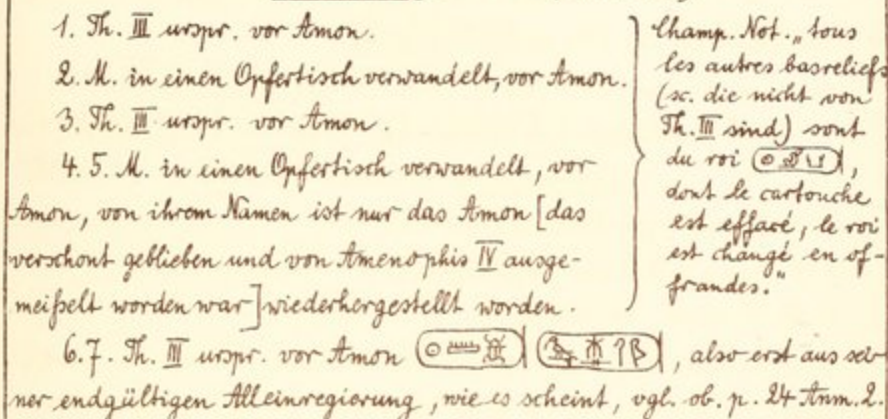 1. Th. III urspr. vor Amon.
2. M. in einen Opfertisch verwandelt, vor Amon.
3. Th. III urspr. vor Amon.
4. 5. M. in einen Opfertisch verwandelt, vor
Amon, von ihrem Namen ist nur das Amon [das
verschont geblieben und von Amenophis IV ausge-
meißelt worden war] wiederhergestellt worden.
Champ. Not. „tous
les autres basreliefs
(sc. die nicht von
Th. III sind) sont
du roi ,
dont le cartouche
est effacé, le roi
est changé en of-
frandes."
6. 7. Th. III urspr. vor Amon , also erst aus sei-
ner endgültigen Alleinregierung, wie es scheint, vgl. ob. p. 24 Anm. 2.